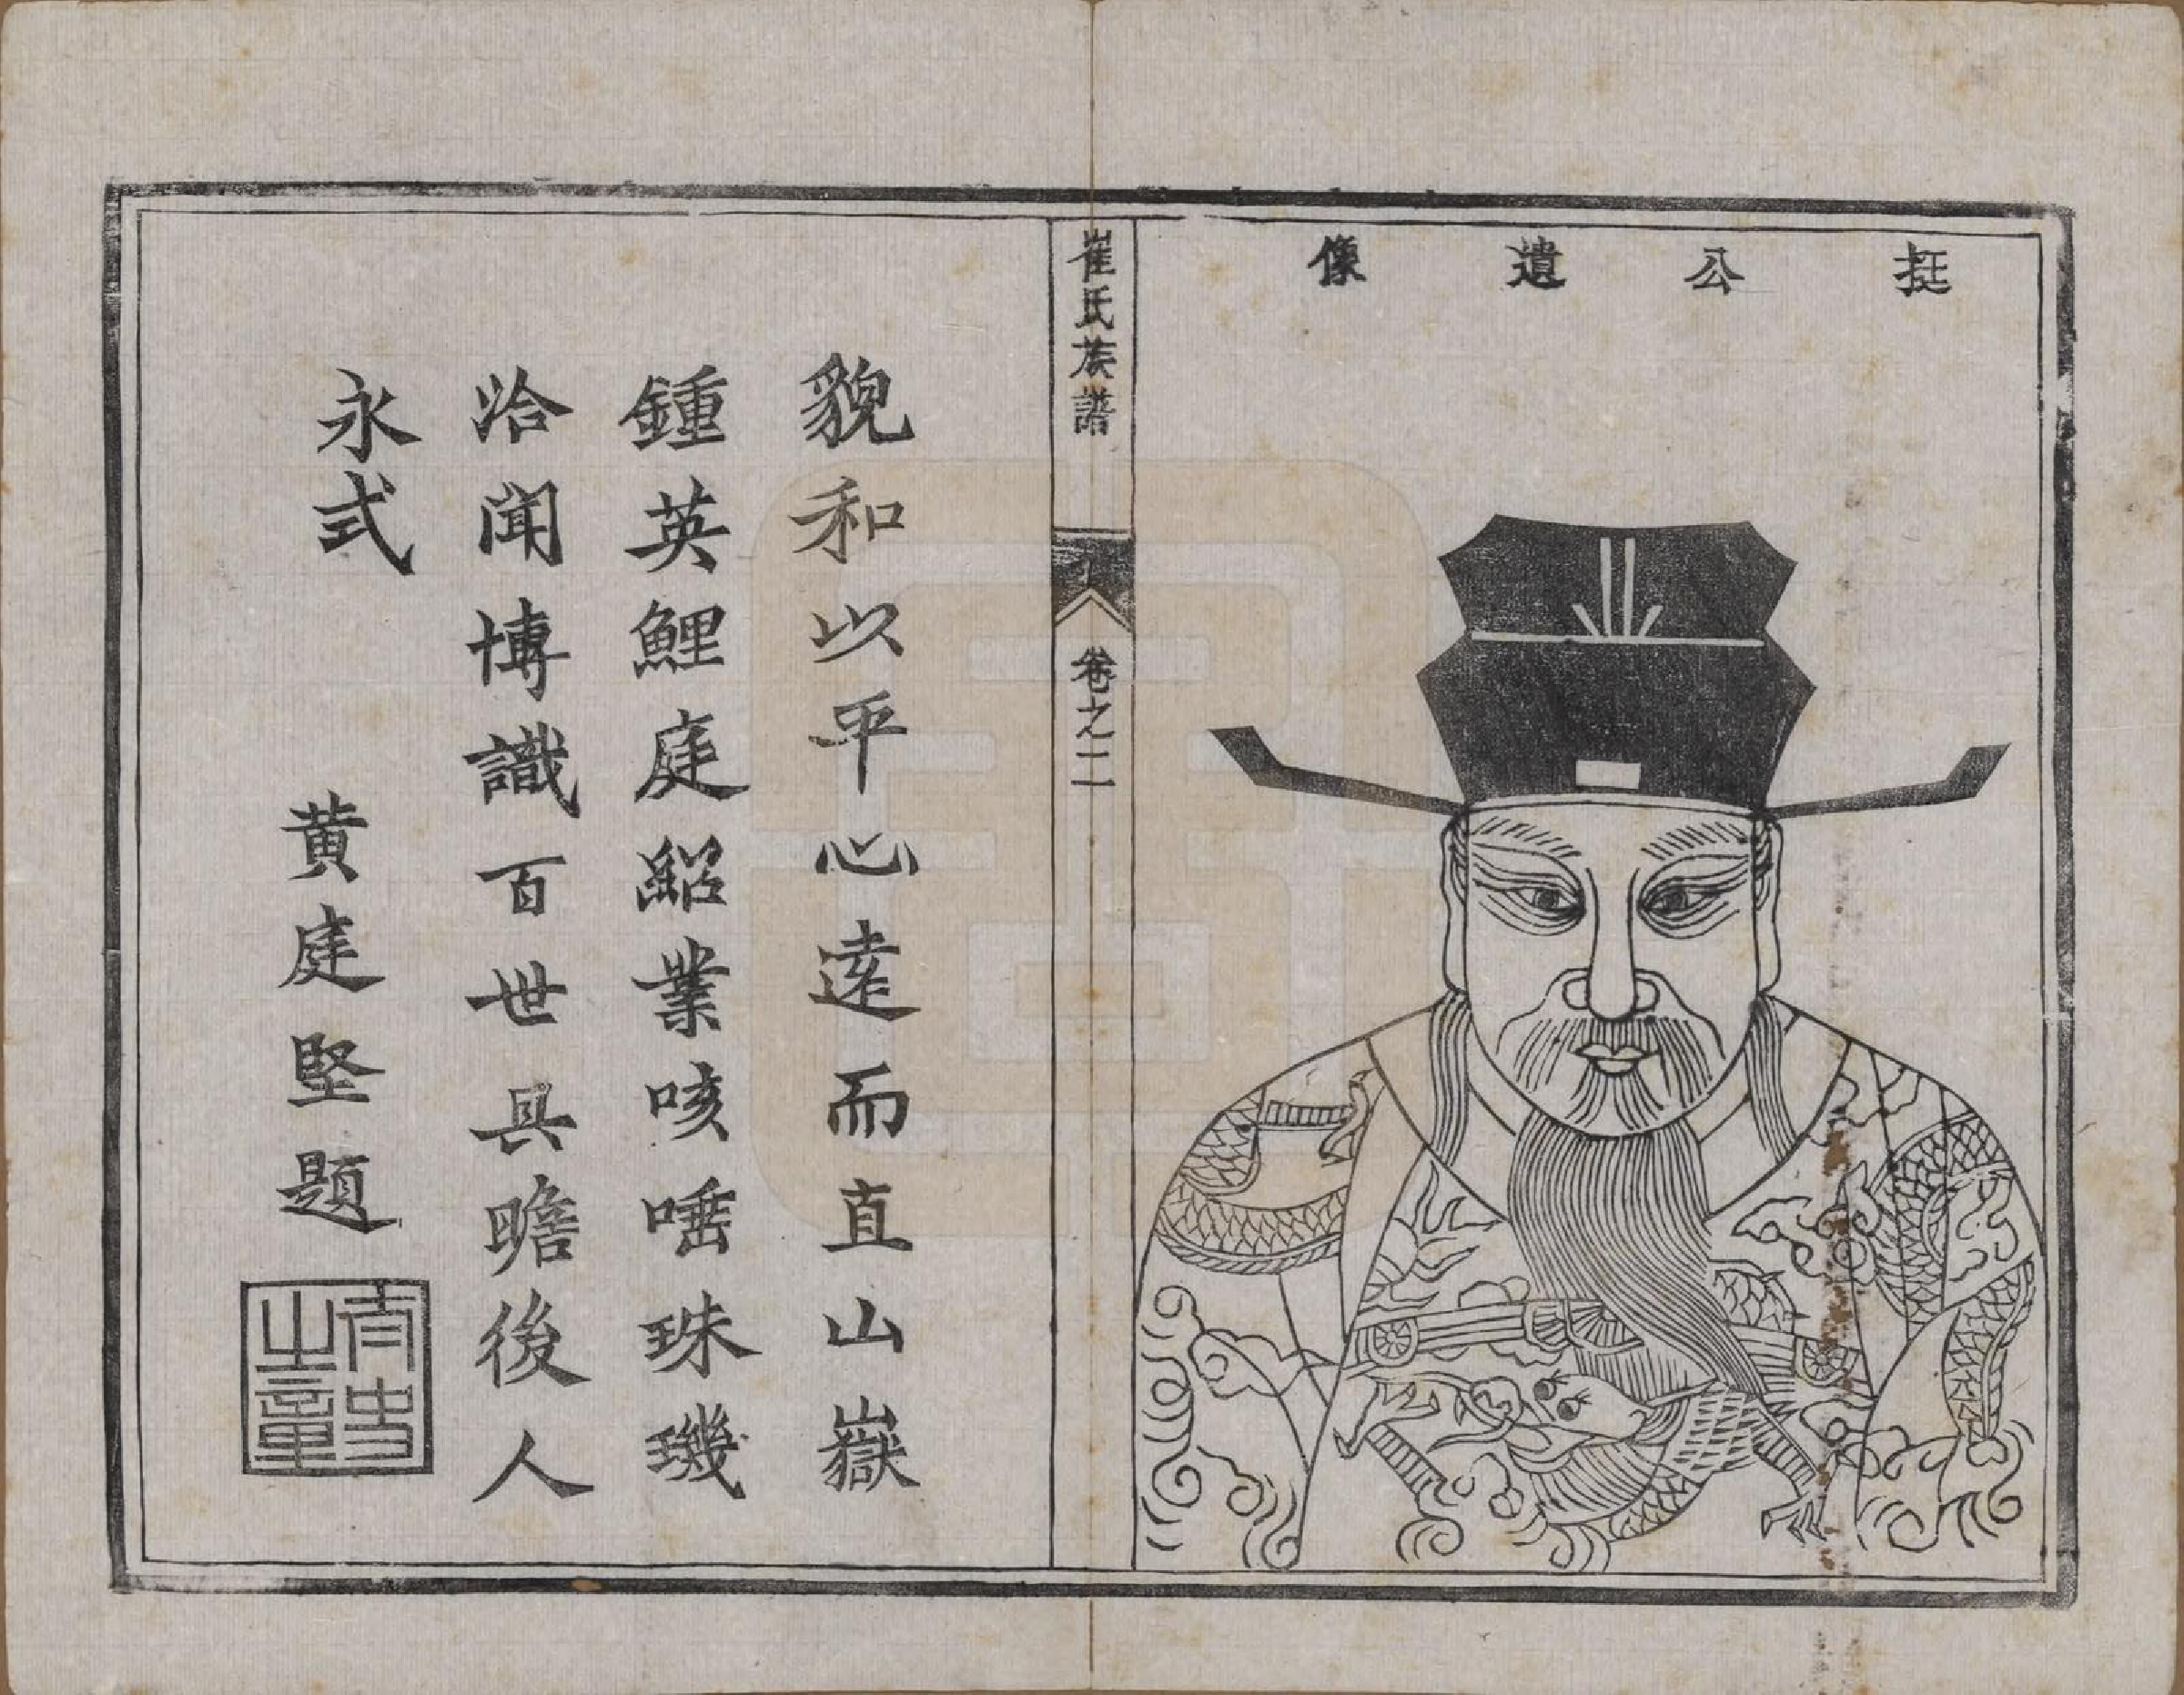 挺公遺像
崔氏族譜
卷之二
貌和以平心逺而直山嶽
鍾英鯉庭紹業咳唾珠璣
洽聞博識百世具瞻後人
永式
黄庭堅題